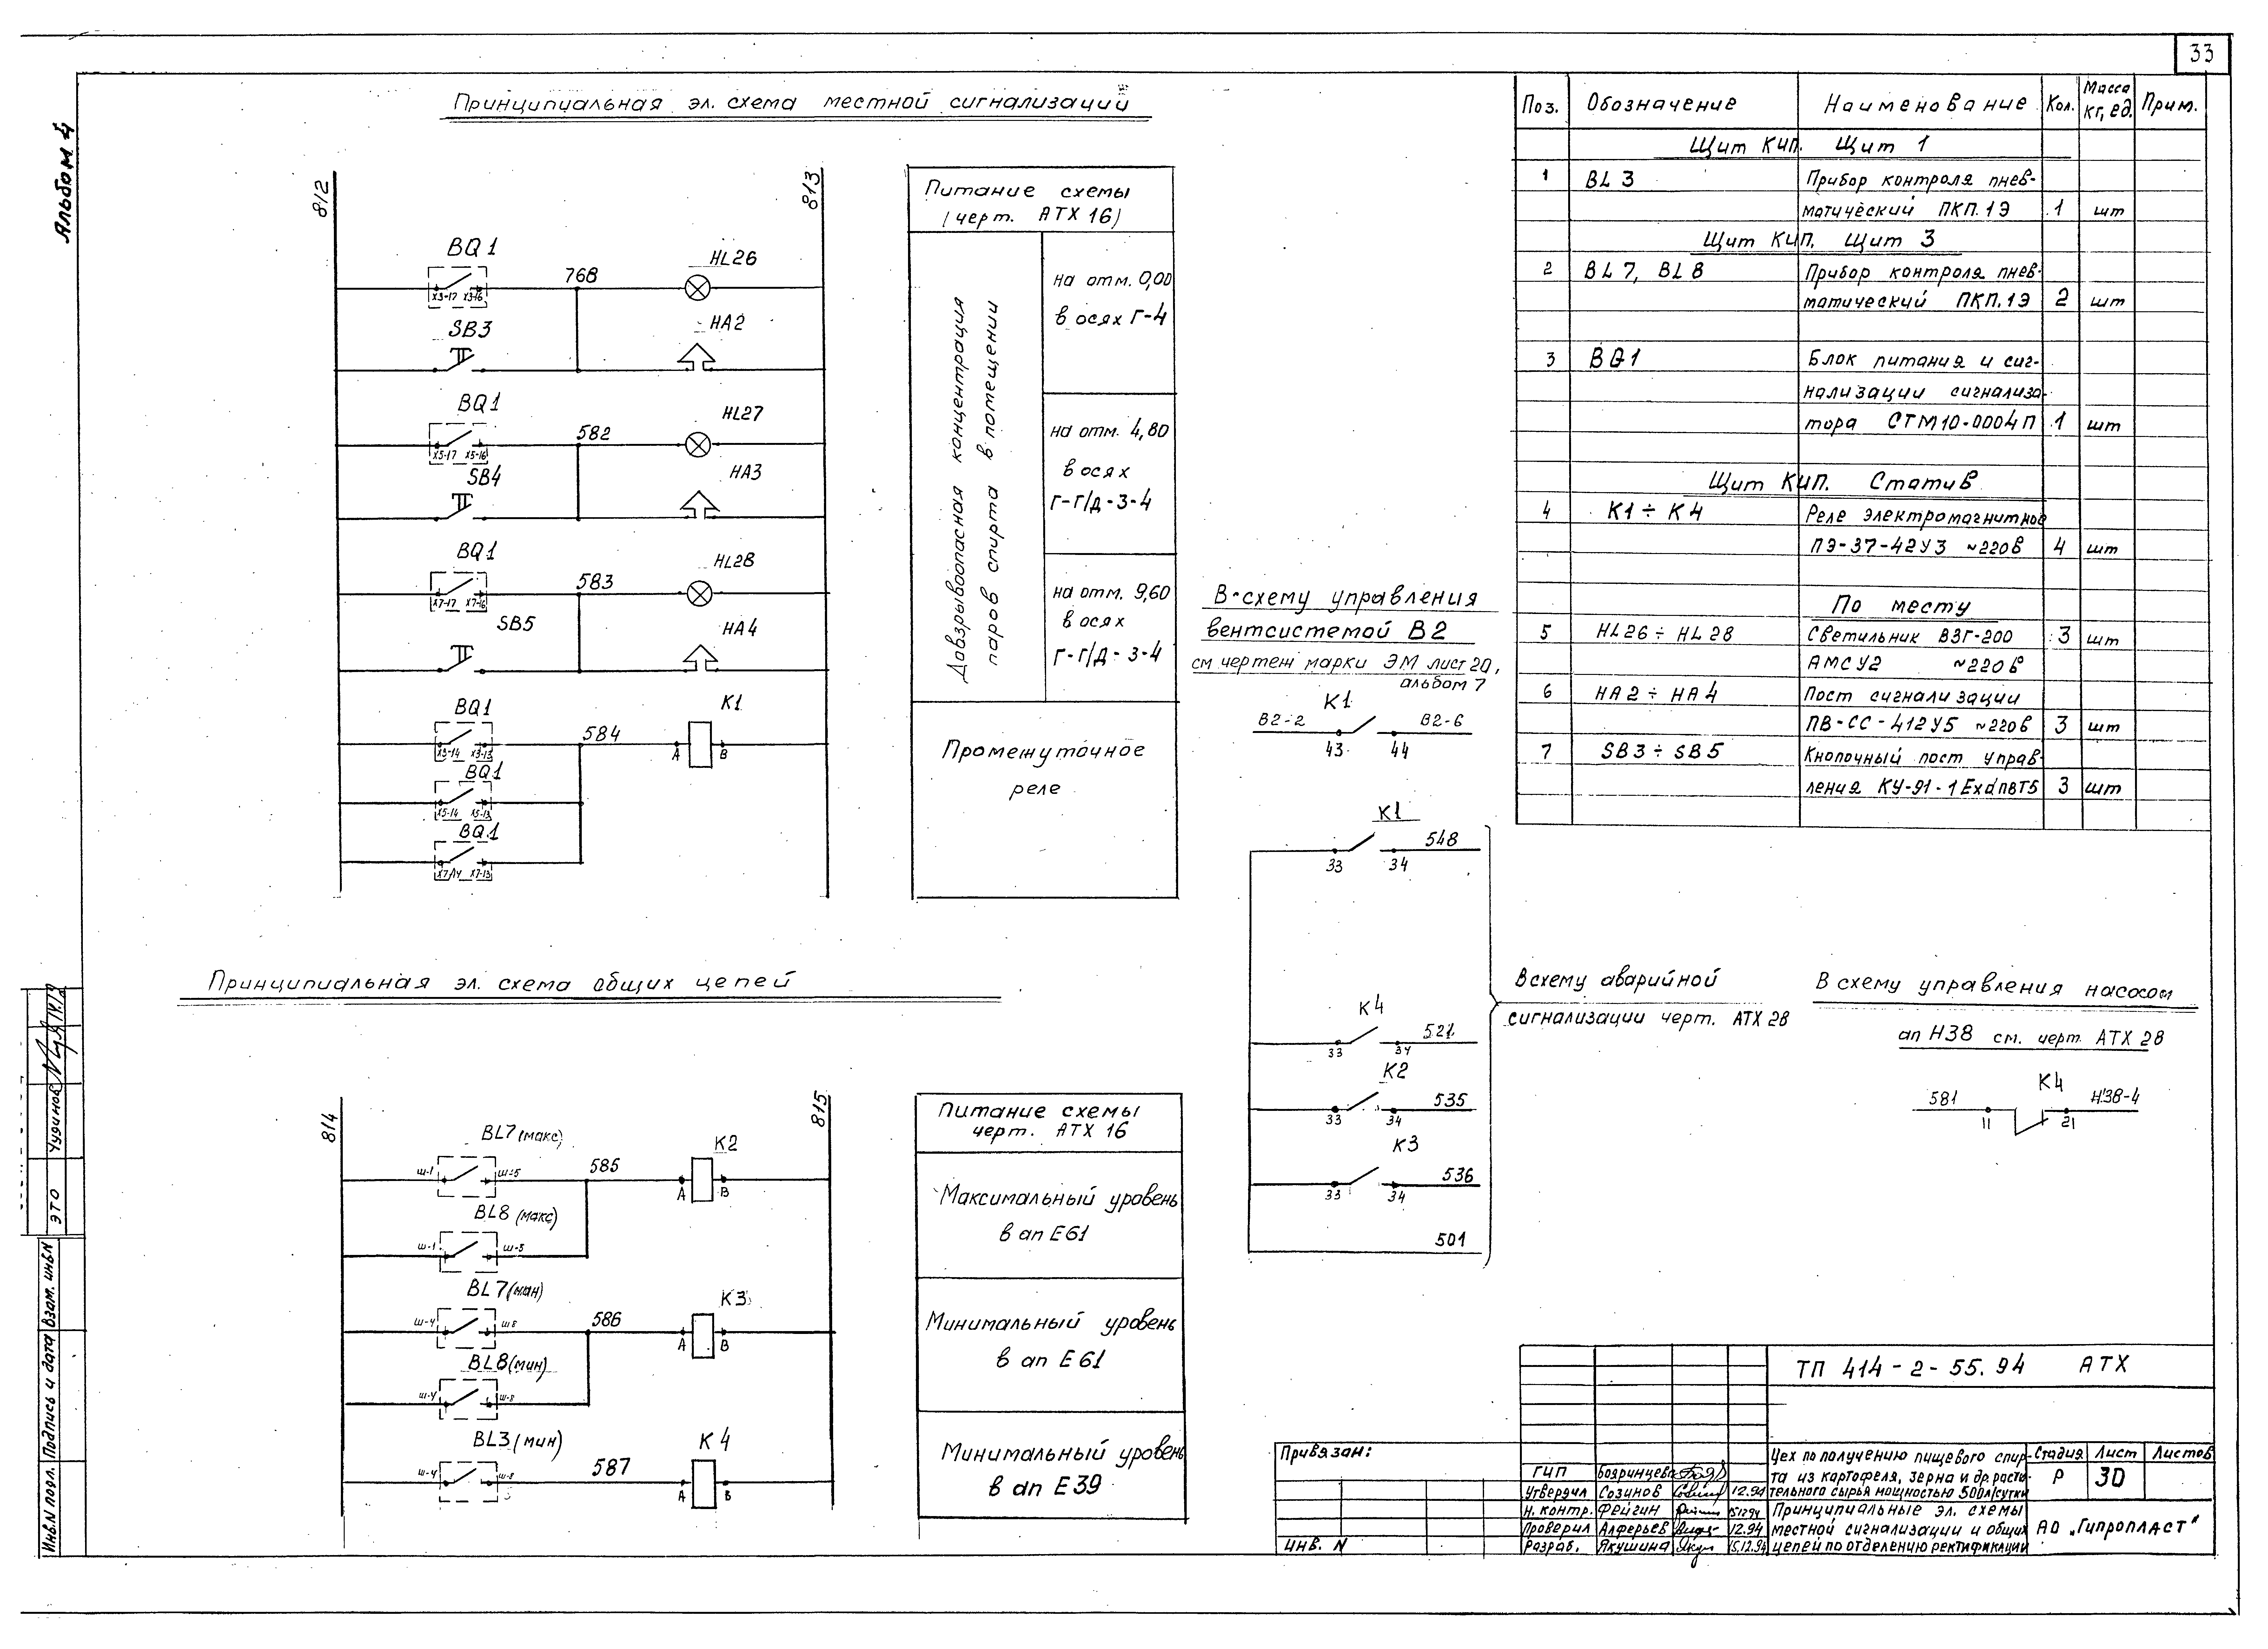 33
Альбом 4
Принципиальная эл. схема местной сигнализаций
812
813
BQ1
X3-17 X3-16
768
HL26
SB3
HA2
BQ1
X5-17 X5-16
582
HL27
SB4
HA3
BQ1
X7-17 X7-16
583
HL28
SB5
HA4
BQ1
X3-14 X3-13
584
K1
A
B
BQ1
X5-14 X5-13
BQ1
X7-14 X7-13
Питание схемы
(черт. АТХ 16)
Довзрывоопасная концентрация
паров спирта в помещении
на отм. 0,00
в осях Г-4
на отм. 4,80
в осях
Г-Г/Д-3-4
на отм. 9,60
в осях
Г-Г/Д-3-4
Промежуточное
реле
В схему управления
вентсистемой В2
см чертеж марки ЭМ лист 20,
альбом 7
K1
В2-2
В2-6
43
44
K1
548
33
34
K4
521
33
34
K2
535
33
34
K3
536
33
34
501
В схему аварийной
сигнализации черт. АТХ 28
В схему управления насосом
ап Н38 см. черт. АТХ 28
K4
581
Н38-4
11
21
Поз.
Обозначение
Наименование
Кол.
Масса
кг, ед.
Прим.
Щит КИП. Щит 1
1
BL3
Прибор контроля пнев-
матический ПКП.1Э
1
шт
Щит КИП. Щит 3
2
BL7, BL8
Прибор контроля пнев-
матический ПКП.1Э
2
шт
3
BQ1
Блок питания и сиг-
нализации сигнализа-
тора СТМ10-0004П
1
шт
Щит КИП. Статив
4
K1÷K4
Реле электромагнитное
ПЭ-37-42У3 ~220в
4
шт
По месту
5
HL26÷HL28
Светильник ВЗГ-200
3
шт
АМСУ2 ~220в
6
HA2÷HA4
Пост сигнализации
ПВ-СС-412У5 ~220в
3
шт
7
SB3÷SB5
Кнопочный пост управ-
ления КУ-91-1ExdПВТ5
3
шт
Принципиальная эл. схема общих цепей
814
815
BL7 (макс)
ш-1
ш-5
585
K2
A
B
BL8 (макс)
ш-1
ш-5
BL7 (мин)
ш-4
ш8
586
K3
A
B
BL8 (мин)
ш-4
ш-8
BL3 (мин)
ш-4
ш-8
587
K4
A
B
Питание схемы
черт. АТХ 16
Максимальный уровень
в ап Е61
Минимальный уровень
в ап Е61
Минимальный уровень
в ап Е39
ЭТО
Чудинов
Инв.N подл.
Подпись и дата
Взам. инв.N
Привязан:
Инв. N
ТП 414-2-55.94 АТХ
ГИП
Бояринцева
Утвердил
Созинов
12.94
Н. контр.
Фейгин
51294
Проверил
Алферьев
12.94
Разраб.
Якушина
15.12.94
Цех по получению пищевого спир-
та из картофеля, зерна и др. расти-
тельного сырья мощностью 500л/сутки
Принципиальные эл. схемы
местной сигнализации и общих
цепей по отделению ректификации
Стадия
Лист
Листов
Р
30
АО „Гипропласт“